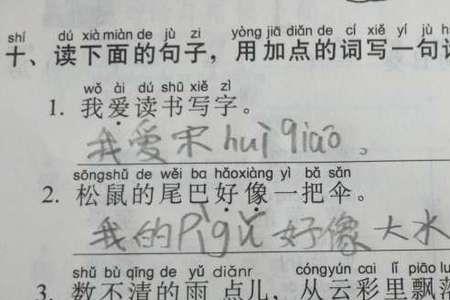 shí dú xià miàn de jù zi yòng jiā diǎn de cí xiě yī jù h
十、读下面的句子，用加点的词写一句
wǒ ài dú shū xiě zì
1. 我爱读书写字。
我爱宋huì qiáo。
sōngshǔ de wěi ba hǎoxiàng yì bǎ sǎn
2. 松鼠的尾巴好像一把伞。
我的Pìgǔ好像大水
shǔ bù qīng de yǔ diǎnr cóngyún cai lǐ piāo lu
3. 数不清的雨点儿，从云彩里飘